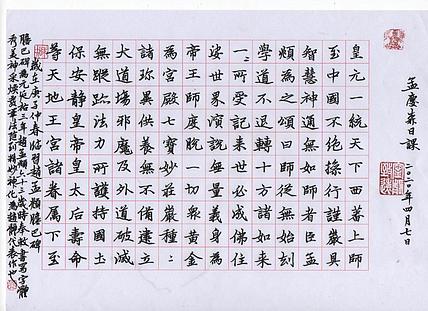 孟慶森日課
二〇二〇年四月七日
皇元一統天下西蕃上師
至中國不絕操行謹嚴具
智慧神通無如師者臣孟
頫為之頌曰師從無始劫
學道不退轉十方諸如来
一〻所受記来世必成佛住
娑世界演說無量義身為
帝王師度脫一切衆黃金
為宮殿七寶妙莊嚴種〻
諸珍異供養無不備建立
大道場邪魔及外道破滅
無蹤跡法力所護持國土
保安靜皇帝皇太后壽命
等天地王宮諸眷属下至
歲在庚子仲春臨習趙孟頫膽巴碑
膽巴碑為元延祐三年趙孟頫六十三歲時奉敕書寫字體
秀美神采煥發筆法精到代表作也